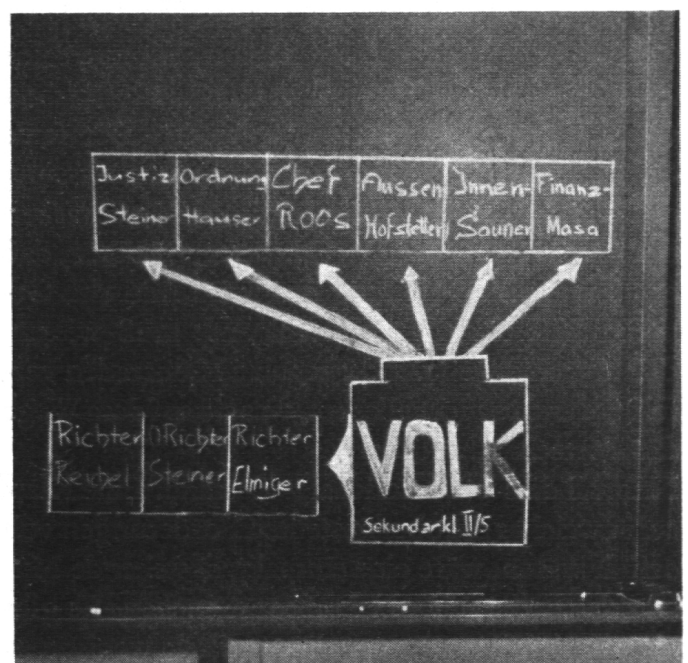 Justiz Ordnung Chef Aussen Innen- Finanz-
Steiner Hauser Roos Hofstetter Sauner Masa
Richter Richter Richter
Reichel Steiner Elmiger
VOLK
Sekundarkl II/5